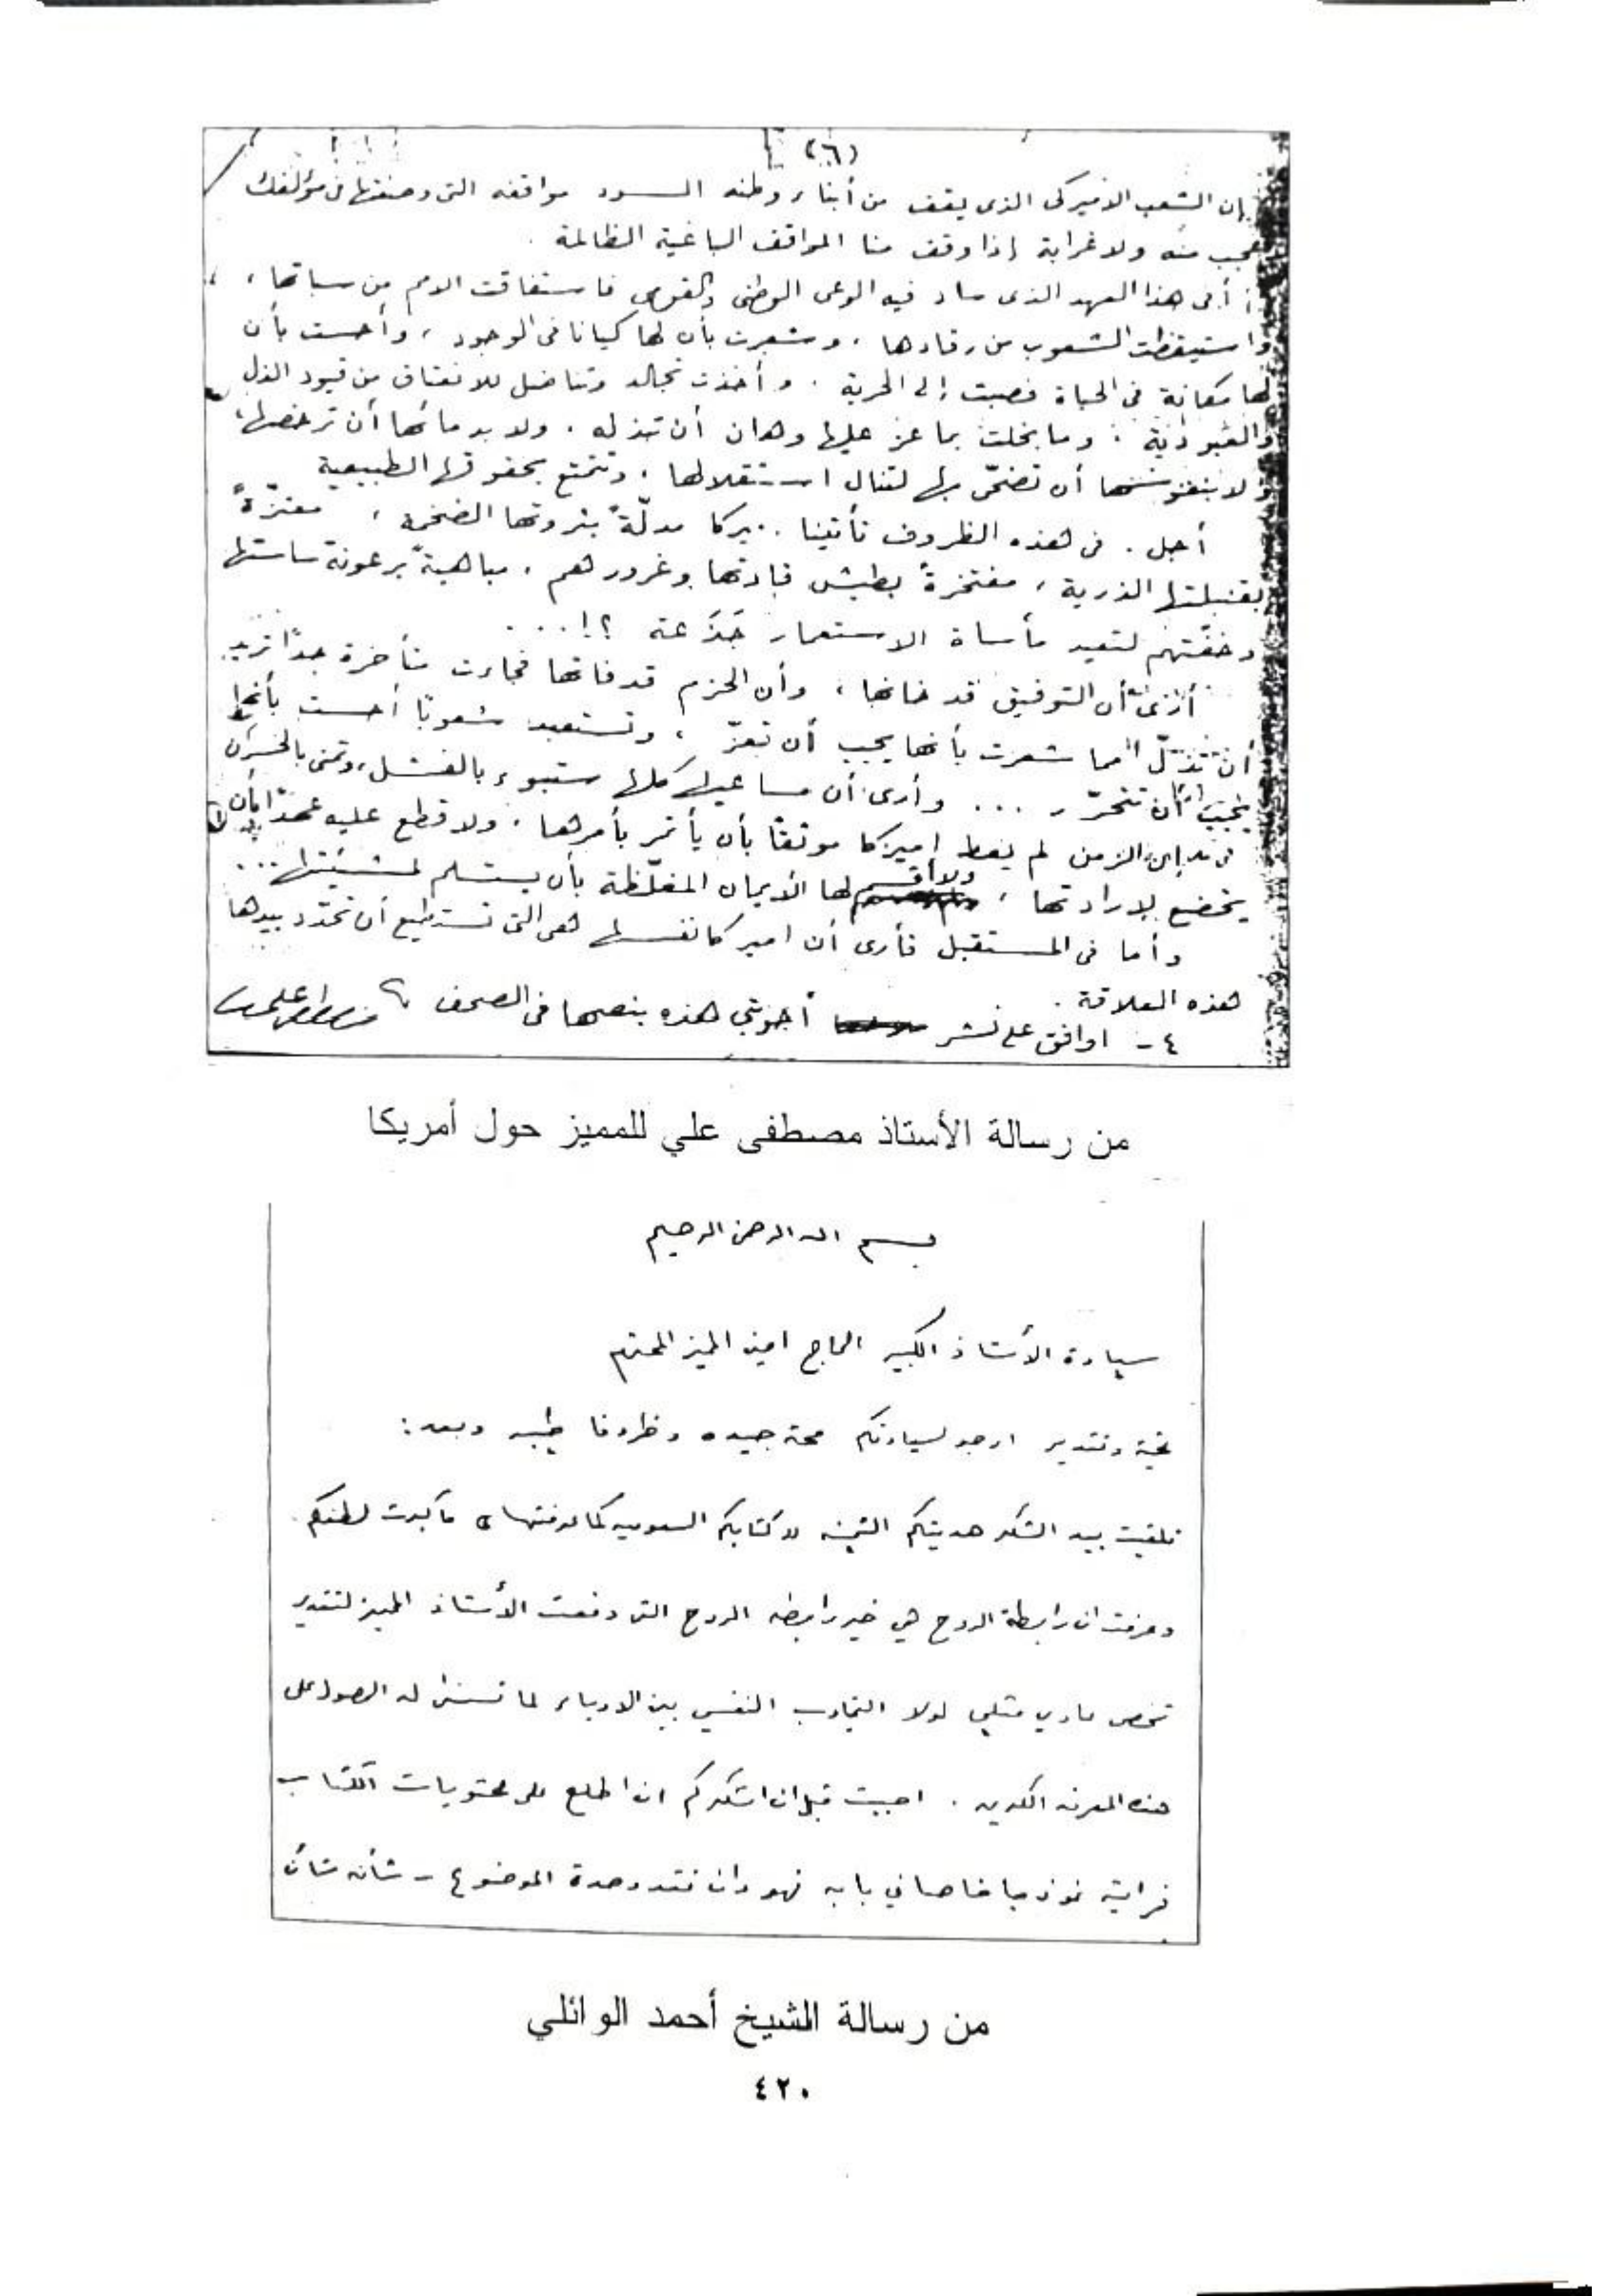 (٦)
إن الشعب الاميركى الذى يقف من أبناء وطنه السود مواقفه التى وصفتها فى مؤلفك
عجب منه ولا غرابة إذا وقف منا المواقف الباغية الظالمة .
أفى هذا العهد الذى ساد فيه الوعى الوطنى والقومى فاستفاقت الامم من سباتها ،
واستيقظت الشعوب من رقادها ، وشعرت بأن لها كيانا فى الوجود ، وأحست بأن
لها مكانة فى الحياة فصبت إلى الحرية . وأخذت تجالد وتناضل للانعتاق من قيود الذل
والعبودية . وما بخلت بما عز عليها وهان أن تبذله . ولا بدمائها أن ترخصها ،
ولا بنفوسها أن تضحّى بها لتنال استقلالها . وتتمتع بحقوقها الطبيعية
أجل . فى هذه الظروف تأتينا ميركا مدلّةً بثروتها الضخمة ، معتزّةً
بقنبلتها الذرية ، مفتخرةً بطيش قادتها وغرورهم ، مباهيةً برعونة ساستها
وخفّتهم لتعيد مأساة الاستعمار جَذَعة ؟! ...
أرى أن التوفيق قد خانها ، وأن الحزم قد فاتها فجاءت متأخرة جدًا تريد
أن تذلّ أمما شعرت بأنها يجب أن تعزّ ، وتستعبد شعوبًا أحست بأنها
يجب أن تتحرّر ... وأرى أن مساعيها كلها ستبوء بالفشل ، وتمنى بالخسران
إن الزمن لم يعط اميركا موثقًا بأن يأتمر بأمرها . ولا قطع عليه عهدًا بأن
يخضع لإرادتها ، ولا أقسم لها الأيمان المغلّظة بأن يستسلم لمشيئتها ...
وأما فى المستقبل فأرى أن اميركا نفسها هى التى تستطيع أن تحدّد بيدها
هذه العلاقة .
٤ - اوافق على نشر أجوبتي هذه بنصها فى الصحف مصطفى علي
من رسالة الأستاذ مصطفى علي للمميز حول أمريكا
بسم الله الرحمن الرحيم
سيادة الأستاذ الكبير الحاج امين المميز المحترم
تحية وتقدير ارجو لسيادتكم صحة جيده وظروفا طيبه وبعد :
تلقيت بيد الشكر هديتكم الثمينه كتابكم السعوديه كما عرفتها فأكبرت لطفكم
وعرفت ان رابطة الروح هي خير رابطه الروح التى دفعت الأستاذ المميز لتقدير
شخص عادي مثلي لولا التجارب النفسي بين الادباء لما تسنى له الحصول على
هذه المعرفه الكريمه . احببت قبل ان اشكركم ان اطلع على محتويات الكتاب
فرأيته نموذجا خاصا في بابه فهو وان فقد وحدة الموضوع - شأنه شأن
من رسالة الشيخ أحمد الوائلي
٤٢٠